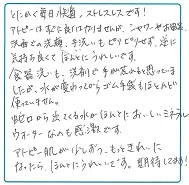 とにかく毎日快適、ストレスレスです!
アトピーはまだ良くはなりませんが、シャワーやお風呂、
洗面での洗顔、手洗いもピリピリせず、逆に
気持ち良くて ほんとにうれしいです。
食器洗いも、洗剤で手が荒れると思っていま
したが、水が変わってからゴム手袋もほとんど
使ってません。
蛇口から出てくる水がほんとにおいしいミネラル
ウォーターなんも感激です。
アトピー肌が少しずつ、もっときれいに
なったら、ほんとにうれしいです。期待してます!